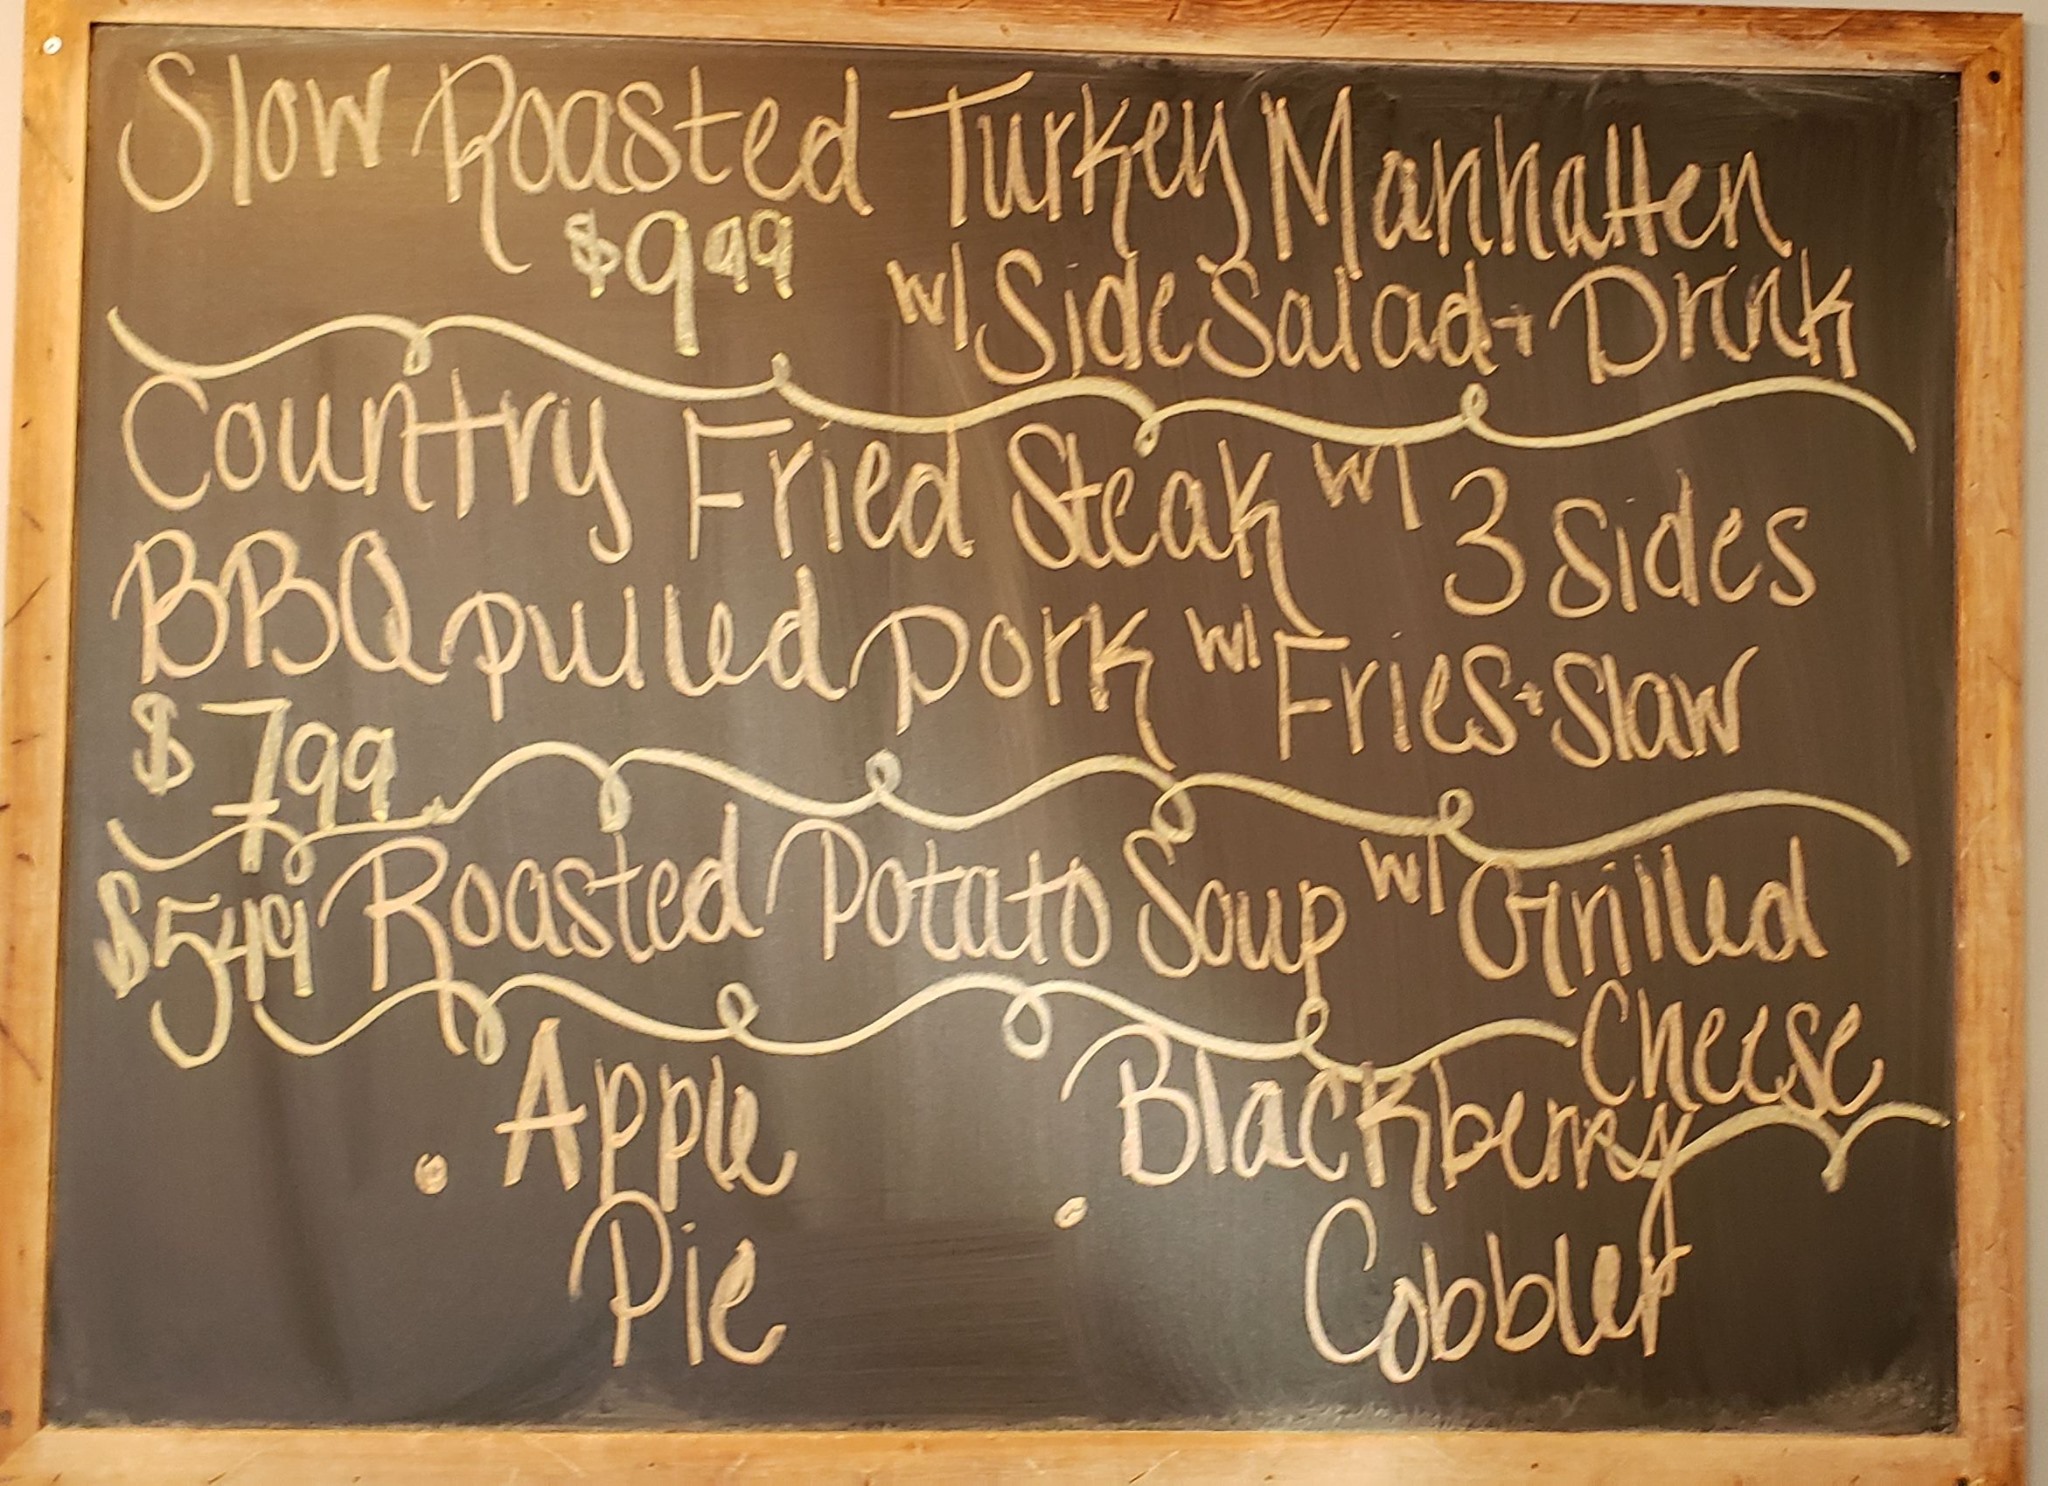 Slow Roasted Turkey Manhatten
$9.99 w/ Side Salad + Drink
Country Fried Steak w/ 3 Sides
BBQ pulled Pork w/ Fries + Slaw
$7.99
$5.49 Roasted Potato Soup w/ Grilled
Cheese
• Apple
Pie
• Blackberry
Cobbler